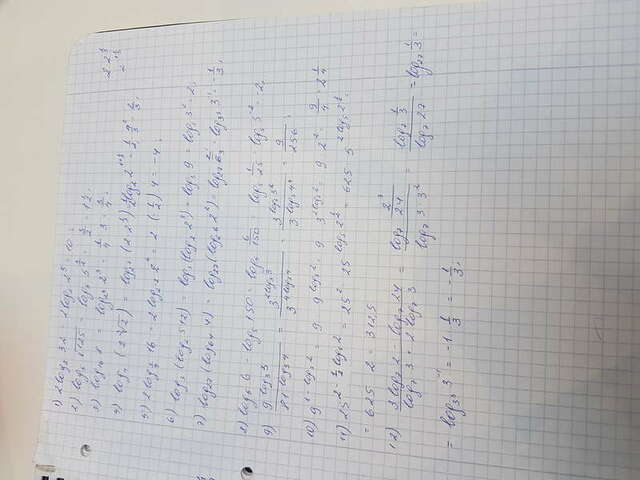 1) 2log₂ 32 = 2log₂ 2⁵ = 10;
2) log₅ √125 = log₅ 5^(3/2) = 3/2 = 1 1/2
3) log₁₆ 8 = log₂⁴ 2³ = 1/4 · 3 = 3/4;
2·2^(1/3)
2^(1+1/3)
4) log₄ (2 ∛2) = log₂² (2·2^(1/3)) = 1/2 log₂ 2^(1+1/3)
6) log₃ (log₂ 512) = log₃ (log₂ 2⁹) = log₃ 9 = log₃ 3² = 2;
7) log₂₇ (log₆₄ 4) = log₂₇ (log₂⁶ 2²) = log₂₇ 2/6 = log₃³ 3⁻¹ = -1/3;
8) log₅ 6 - log₅ 150 = log₅ 6/150 = log₅ 1/25 = log₅ 5⁻² = -2;
9) 9^(log₃ 3) / 81^(log₃ 4) = 3^(2log₃ 3) / 3^(4log₃ 4) = 3^(log₃ 3²) / 3^(log₃ 4⁴) = 9/256;
10) 9^(1-log₃ 2) = 9 · 9^(-log₃ 2) = 9 · 3^(-2log₃ 2) = 9 · 2⁻² = 9/4 = 2 1/4
11) 25^(2-1/2 log₅ 2) = 25² · 25^(log₅ 2^(1/2)) = 625 · 5^(2log₅ 2^(1/2)) =
= 625 · 2 = 3125
12) (3log₇ 2 - log₇ 24) / (log₇ 3 + 2log₇ 3) = (log₇ 2³/24) / (log₇ 3·3²) = (log₇ 1/3) / (log₇ 27) = log₂₇ 1/3 =
= log₃³ 3⁻¹ = -1 · 1/3 = -1/3;